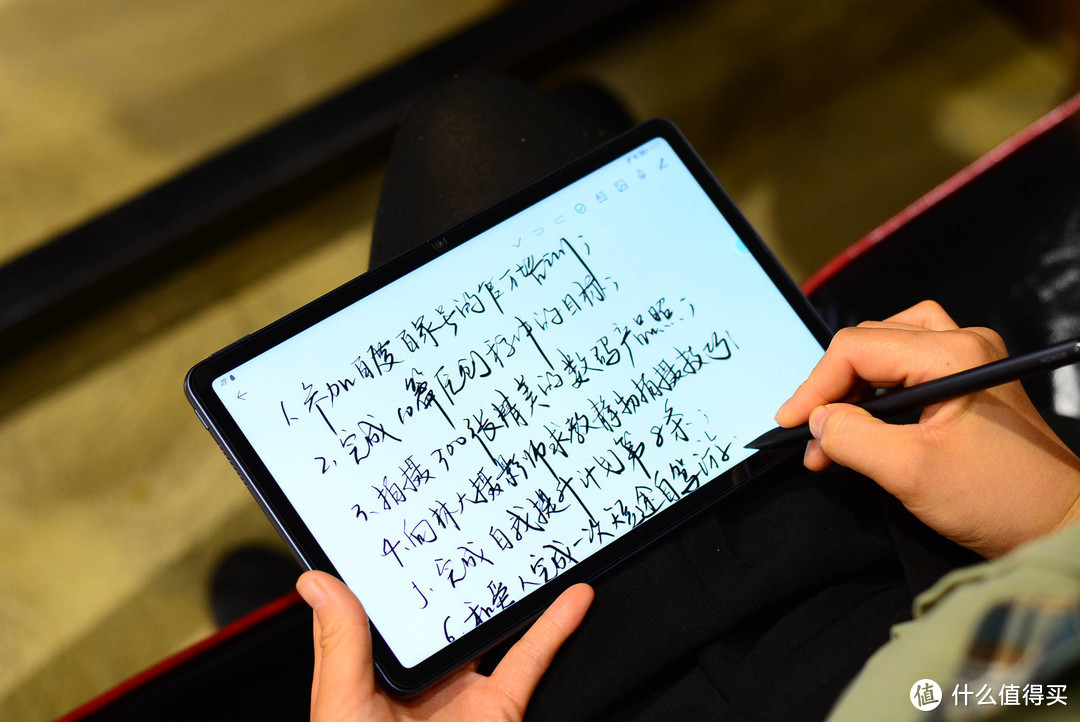 1、参加百度百家号的官方培训;
2、完成10篇原创稿件的目标;
3、拍摄300张精美的数码产品照;
4、向林大摄影师求教静物拍摄技巧;
5、完成自我提升计划第8条;
6、和爱人完成一次短途自驾游
值 什么值得买